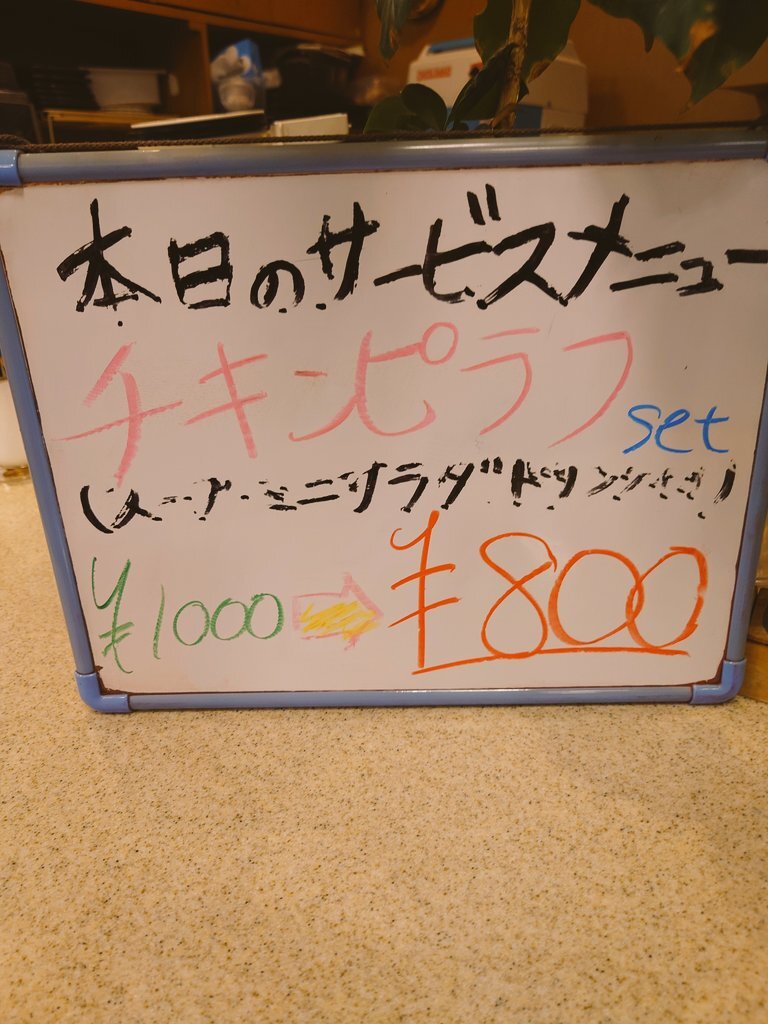 本日のサービスメニュー
チキンピラフ set
(スープ・ミニサラダ・ドリンク付き)
¥1000 ➡ ¥800